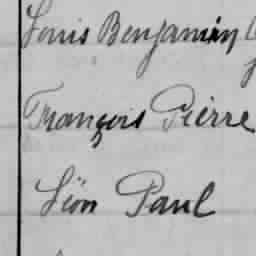 Louis Benjamin
François Pierre
Léon Paul